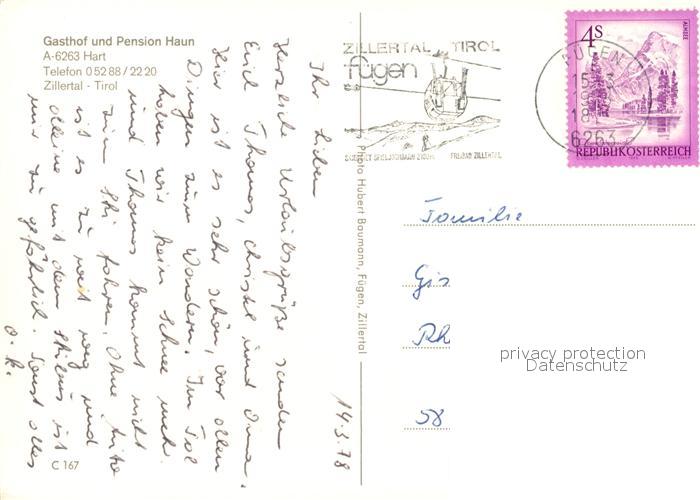 Gasthof und Pension Haun
A-6263 Hart
Telefon 0 52 88 / 22 20
Zillertal - Tirol
Ihr Lieben
Herzliche Urlaubsgrüße senden
Euch Thomas, Christel und Oma.
Hier ist es sehr schön, vor allen
Dingen zum Wandern. Im Tal
haben wir kein Schnee mehr
und Thomas kommt nicht
zum Ski fahren. Ohne
ist es zu weit weg und
alleine mit dem Skibus ist
mir zu gefährlich. Sonst alles
o. k.
14.3.78
C 167
Photo Hubert Baumann, Fügen, Zillertal
ZILLERTAL TIROL
fügen
FREIBAD ZILLERTAL
FÜGEN
6263
4S
ALMSEE
REPUBLIK ÖSTERREICH
Familie
Gis
Rh
58
privacy protection
Datenschutz